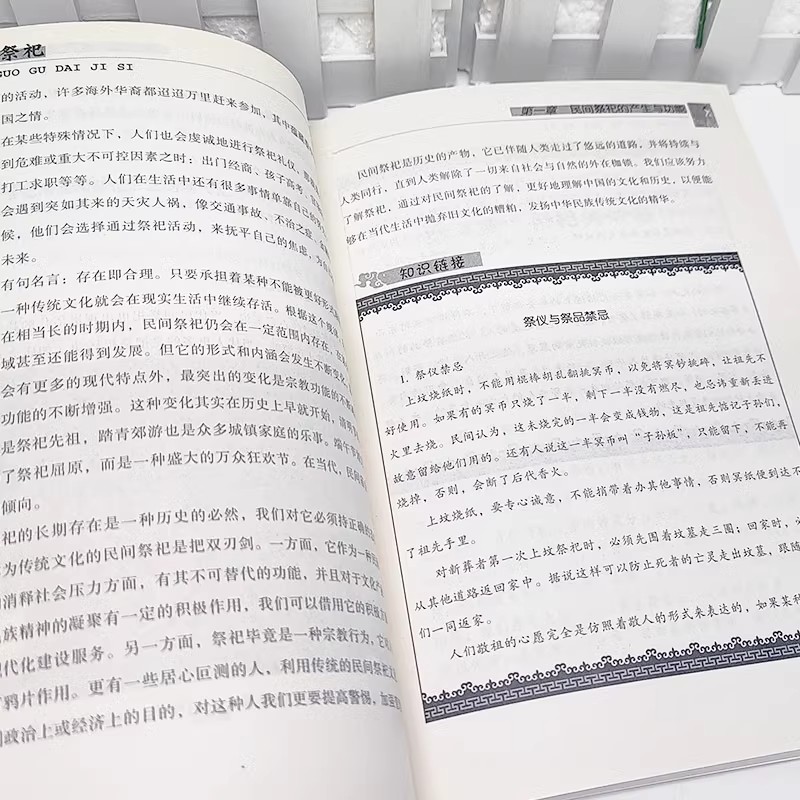 祭祀
GUO GU DAI JI SI
的活动，许多海外华裔都迢迢万里赶来参加，其中蕴
国之情。
在某些特殊情况下，人们也会虔诚地进行祭祀礼仪，
到危难或重大不可控因素之时：出门经商、孩子高考、
打工求职等等。人们在生活中还有很多事情单靠自己的
会遇到突如其来的天灾人祸，像交通事故、不治之症、
候，他们会选择通过祭祀活动，来抚平自己的焦虑，为
未来。
有句名言：存在即合理。只要承担着某种不能被更好形式
一种传统文化就会在现实生活中继续存活。根据这个
在相当长的时期内，民间祭祀仍会在一定范围内存在，
域甚至还能得到发展。但它的形式和内涵会发生不断变化，
会有更多的现代特点外，最突出的变化是宗教功能的不断
功能的不断增强。这种变化其实在历史上早就开始，清明
是祭祀先祖，踏青郊游也是众多城镇家庭的乐事。端午
了祭祀屈原，而是一种盛大的万众狂欢节。在当代，民间
倾向。
祀的长期存在是一种历史的必然，我们对它必须持正确的
为传统文化的民间祭祀是把双刃剑。一方面，它作为一种
消释社会压力方面，有其不可替代的功能，并且对于文化
民族精神的凝聚有一定的积极作用，我们可以借用它的积极
现代化建设服务。另一方面，祭祀毕竟是一种宗教行为，它
鸦片作用。更有一些居心叵测的人，利用传统的民间祭祀
政治上或经济上的目的，对这种人我们更要提高警惕，加
第一章 民间祭祀的产生与功能
民间祭祀是历史的产物，它已伴随人类走过了悠远的道路，并将持续与
人类同行，直到人类解除了一切来自社会与自然的外在枷锁。我们应该努力
了解祭祀，通过对民间祭祀的了解，更好地理解中国的文化和历史，以便能
够在当代生活中抛弃旧文化的糟粕，发扬中华民族传统文化的精华。
知识链接
祭仪与祭品禁忌
1. 祭仪禁忌
上坟烧纸时，不能用棍棒胡乱翻挑冥币，以免将冥钞挑碎，让祖先不
好使用。如果有的冥币只烧了一半，剩下一半没有燃尽，也忌讳重新丢进
火里去烧。民间认为，这未烧完的一半会变成钱物，这是祖先惦记子孙们，
故意留给他们用的。还有人说这一半冥币叫“子孙板”，只能留下，不能再
烧掉，否则，会断了后代香火。
上坟烧纸，要专心诚意，不能捎带着办其他事情，否则冥纸便到达不
了祖先手里。
对新葬者第一次上坟祭祀时，必须先围着坟墓走三圈；回家时，必
从其他道路返回家中。据说这样可以防止死者的亡灵走出坟墓，跟随
们一同返家。
人们敬祖的心愿完全是仿照着敬人的形式来表达的，如果某种